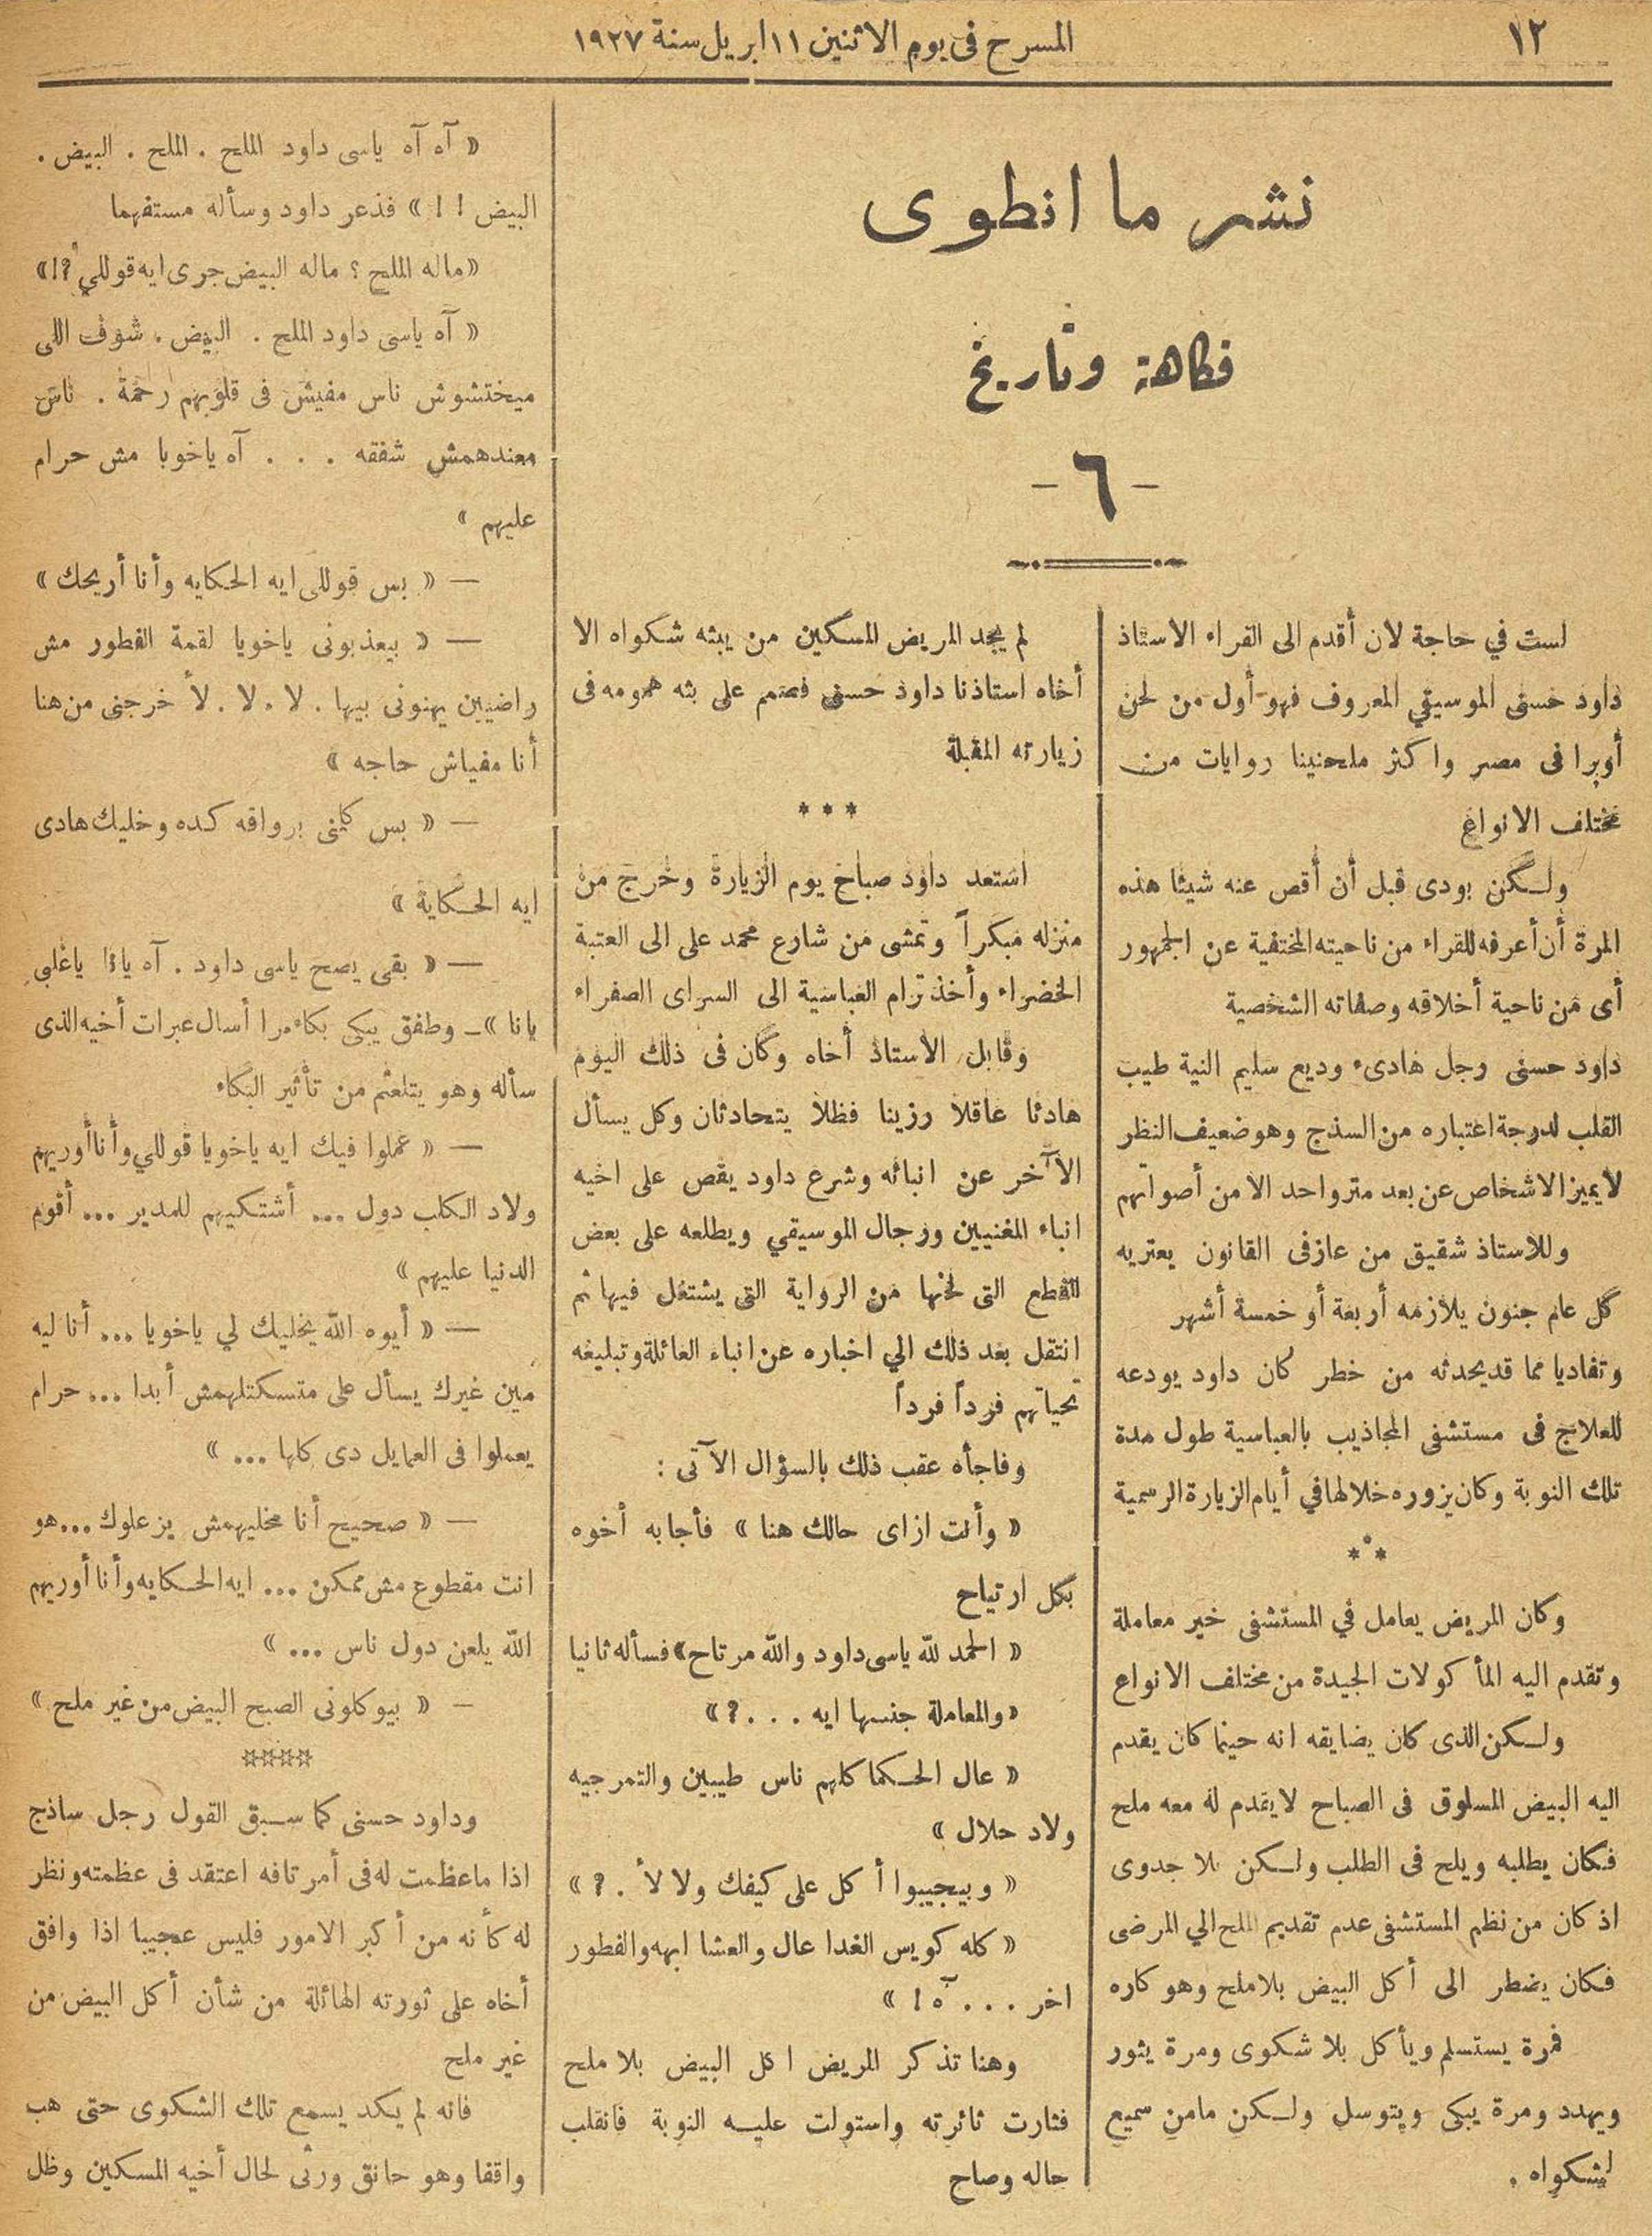 ١٢
المسرح فى يوم الاثنين ١١ ابريل سنة ١٩٢٧
نشر ما انطوى
فكاهة وتاريخ
- ٦ -
لست في حاجة لان أقدم الى القراء الاستاذ
داود حسنى الموسيقي المعروف فهو أول من لحن
أوبرا فى مصر واكثر ملحنينا روايات من
مختلف الانواع
ولكن بودى قبل أن أقص عنه شيئا هذه
المرة أن أعرفه للقراء من ناحيته المختفية عن الجمهور
أى من ناحية أخلاقه وصفاته الشخصية
داود حسنى رجل هادىء وديع سليم النية طيب
القلب لدرجة اعتباره من السذج وهو ضعيف النظر
لا يميز الاشخاص عن بعد متر واحد الا من أصواتهم
وللاستاذ شقيق من عازفى القانون يعتريه
كل عام جنون يلازمه أربعة أو خمسة أشهر
وتفاديا مما قد يحدثه من خطر كان داود يودعه
للعلاج فى مستشفى المجاذيب بالعباسية طول مدة
تلك النوبة وكان يزوره خلالها في أيام الزيارة الرسمية
***
وكان المريض يعامل في المستشفى خير معاملة
وتقدم اليه المأكولات الجيدة من مختلف الانواع
ولكن الذى كان يضايقه انه حينما كان يقدم
اليه البيض المسلوق فى الصباح لا يقدم له معه ملح
فكان يطلبه ويلح فى الطلب ولكن بلا جدوى
اذ كان من نظم المستشفى عدم تقديم الملح الي المرضى
فكان يضطر الى أكل البيض بلا ملح وهو كاره
فمرة يستسلم ويأكل بلا شكوى ومرة يثور
ويهدد ومرة يبكى ويتوسل ولكن ما من سميع
لشكواه .
لم يجد المريض المسكين من يبثه شكواه الا
أخاه استاذنا داود حسنى فصمم على بثه همومه فى
زيارته المقبلة
***
استعد داود صباح يوم الزيارة وخرج من
منزله مبكراً وتمشى من شارع محمد على الى العتبة
الخضراء وأخذ ترام العباسية الى السراى الصفراء
وقابل الاستاذ أخاه وكان فى ذلك اليوم
هادئا عاقلا رزينا فظلا يتحادثان وكل يسأل
الآخر عن انبائه وشرع داود يقص على اخيه
انباء المغنيين ورجال الموسيقي ويطلعه على بعض
القطع التى لحنها من الرواية التى يشتغل فيها ثم
انتقل بعد ذلك الي اخباره عن انباء العائلة وتبليغه
تحياتهم فرداً فرداً
وفاجأه عقب ذلك بالسؤال الآتى :
« وأنت ازاى حالك هنا » فأجابه أخوه
بكل ارتياح
« الحمد لله ياسى داود والله مرتاح» فسأله ثانيا
«والمعاملة جنسها ايه . . .؟»
« عال الحكما كلهم ناس طيبين والتمرجيه
ولاد حلال »
« وبيجيبوا أكل على كيفك ولا لأ .؟ »
« كله كويس الغدا عال والعشا ابهه والفطور
اخر . . . آه ! »
وهنا تذكر المريض اكل البيض بلا ملح
فثارت ثائرته واستولت عليه النوبة فانقلب
حاله وصاح
« آه آه ياسى داود الملح . الملح . البيض .
البيض ! ! » فذعر داود وسأله مستفهما
«ماله الملح ؟ ماله البيض جرى ايه قوللي ؟!»
« آه ياسى داود الملح . البيض . شوف اللى
ميختشوش ناس مفيش فى قلوبهم رحمة . ناس
معندهمش شفقه . . . آه ياخويا مش حرام
عليهم »
— « بس قوللى ايه الحكايه وأنا أريحك »
— « بيعذبونى ياخويا لقمة الفطور مش
راضيين يهنونى بيها . لا . لا . لأ خرجنى من هنا
أنا مفياش حاجه »
— « بس كلمنى برواقه كده وخليك هادى
ايه الحكاية »
— « بقى يصح ياسى داود . آه يانا ياغلبى
يانا »ـ وطفق يبكى بكاء مرا أسال عبرات أخيه الذى
سأله وهو يتلعثم من تأثير البكاء
— « عملوا فيك ايه ياخويا قوللي وأنا أوريهم
ولاد الكلب دول ... أشتكيهم للمدير ... أقوم
الدنيا عليهم »
— « أيوه الله يخليك لي ياخويا ... أنا ليه
مين غيرك يسأل على متسكتلهمش أبدا ... حرام
يعملوا فى العمايل دى كلها ... »
— « صحيح أنا مخليهمش يزعلوك ... هو
انت مقطوع مش ممكن ... ايه الحكايه وأنا أوريهم
الله يلعن دول ناس ... »
— « بيوكلونى الصبح البيض من غير ملح »
****
وداود حسنى كما سبق القول رجل ساذج
اذا ما عظمت له فى أمر تافه اعتقد فى عظمته ونظر
له كأنه من أكبر الامور فليس عجيبا اذا وافق
أخاه على ثورته الهائلة من شأن أكل البيض من
غير ملح
فانه لم يكد يسمع تلك الشكوى حتى هب
واقفا وهو حانق ورثى لحال أخيه المسكين وظل